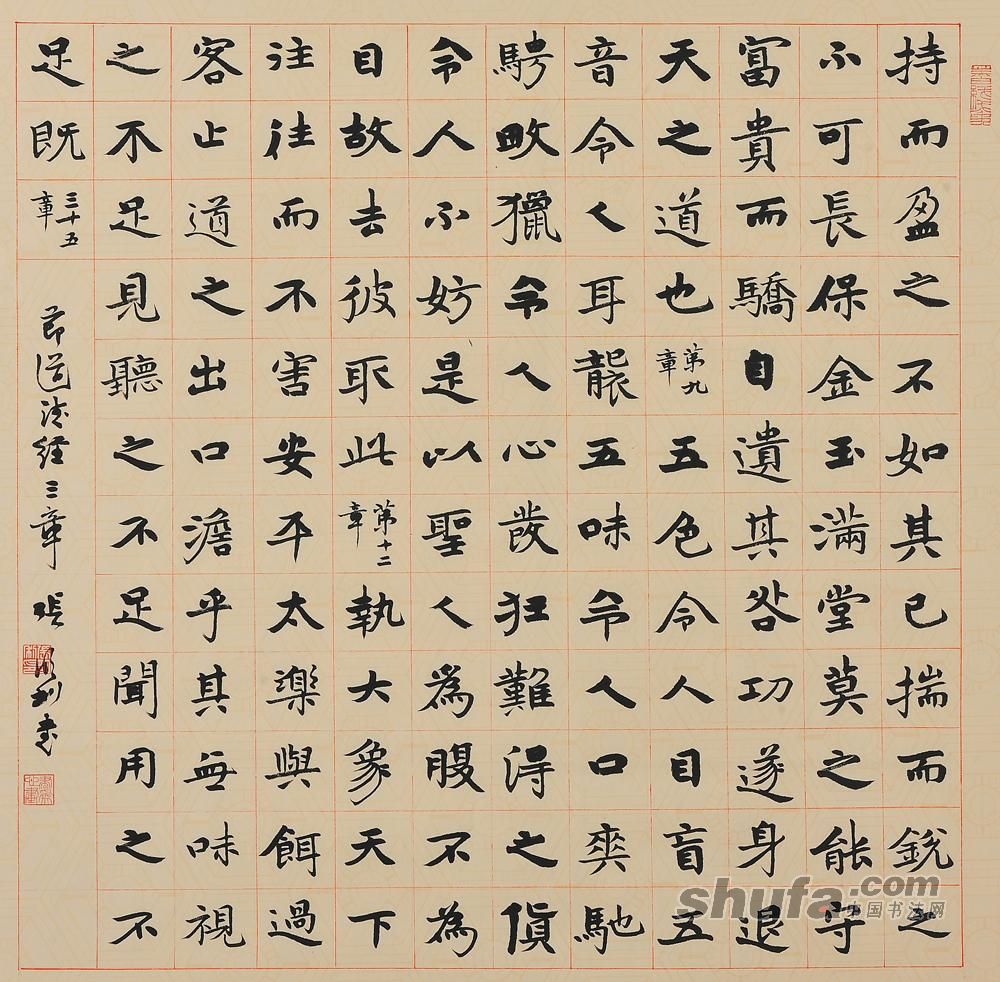 持而盈之不如其已揣而銳之
不可長保金玉滿堂莫之能守
富貴而驕自遺其咎功遂身退
天之道也第九章五色令人目盲五
音令人耳襲五味令人口爽馳
騁畋獵令人心發狂難得之貨
令人不妨是以聖人為腹不為
目故去彼取此第十二章執大象天下
注往而不害安平太樂與餌過
客止道之出口澹乎其無味視
之不足見聽之不足聞用之不
足既三十五章
節道德經三章 張利書
shufa.com
中国书法网